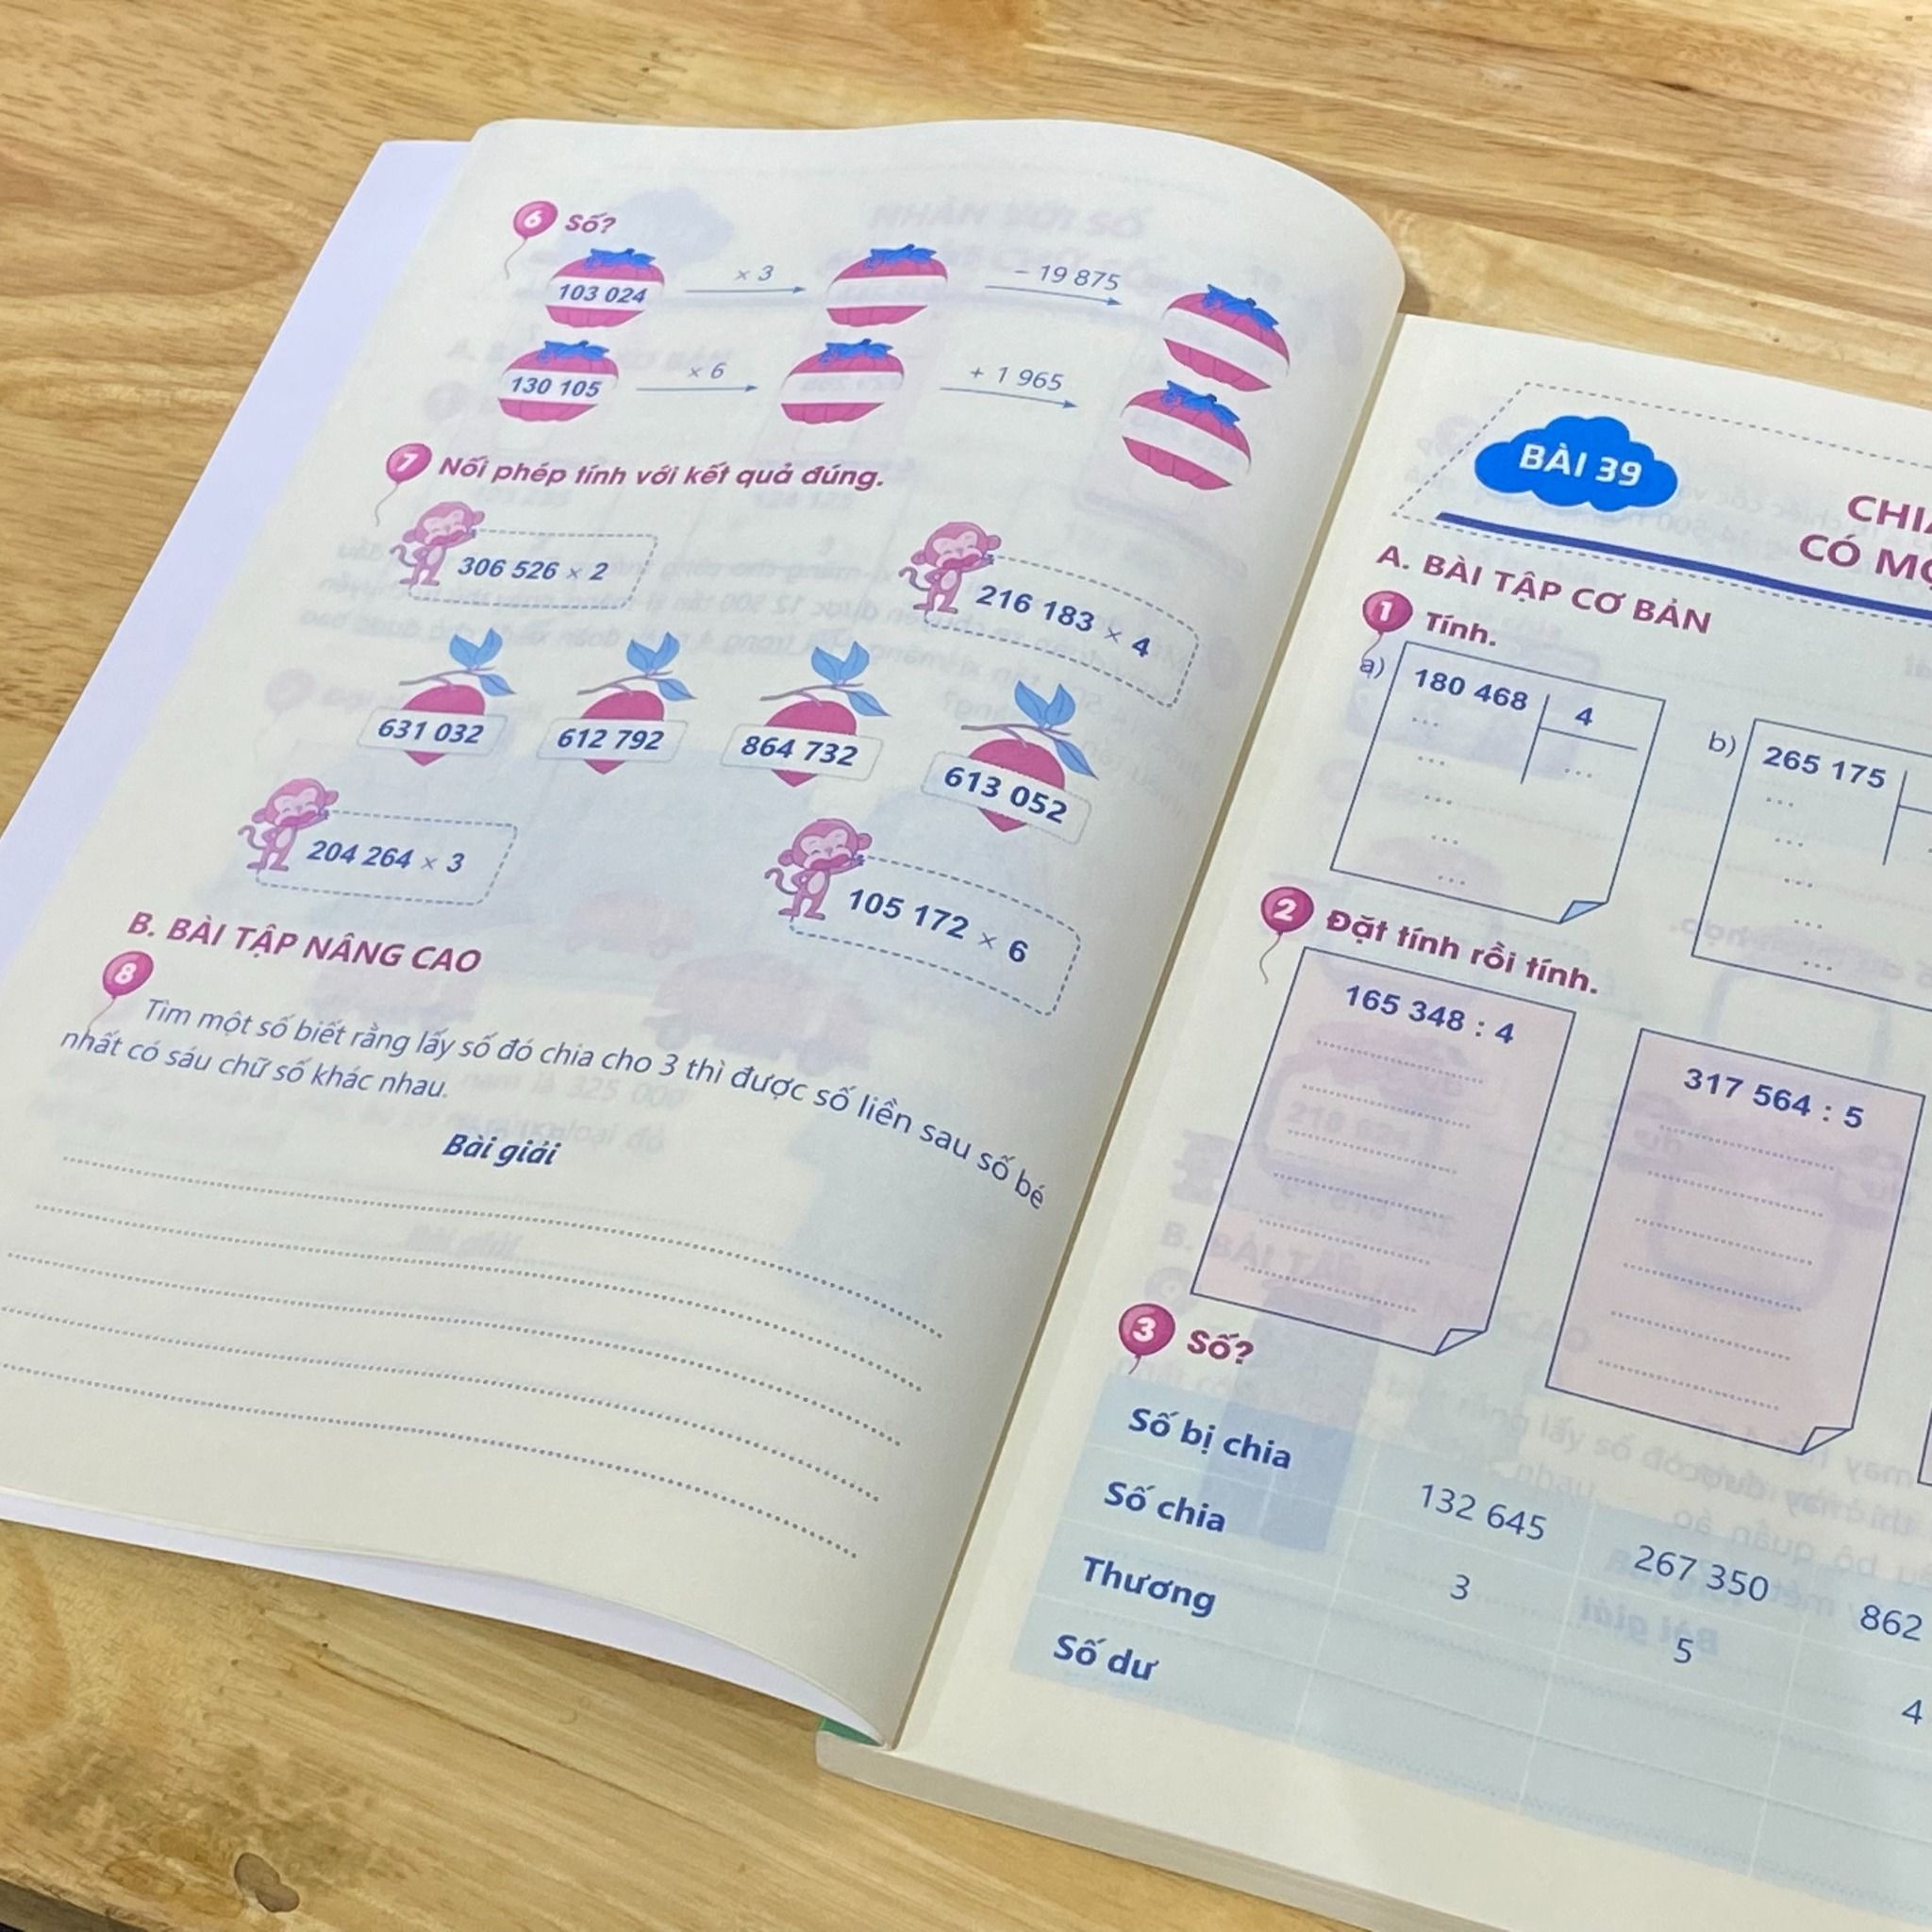 6 Số?
103 024 × 3 − 19 875
130 105 × 6 + 1 965
7 Nối phép tính với kết quả đúng.
306 526 × 2
216 183 × 4
631 032
612 792
864 732
613 052
204 264 × 3
105 172 × 6
B. BÀI TẬP NÂNG CAO
8 Tìm một số biết rằng lấy số đó chia cho 3 thì được số liền sau số bé
nhất có sáu chữ số khác nhau.
Bài giải
BÀI 39
CÓ
A. BÀI TẬP CƠ BẢN
1 Tính.
a) 180 468 4
b) 265 175
2 Đặt tính rồi tính.
165 348 : 4
317 564 : 5
3 Số?
Số bị chia 132 645 267 350 862
Số chia 3 5 4
Thương
Số dư